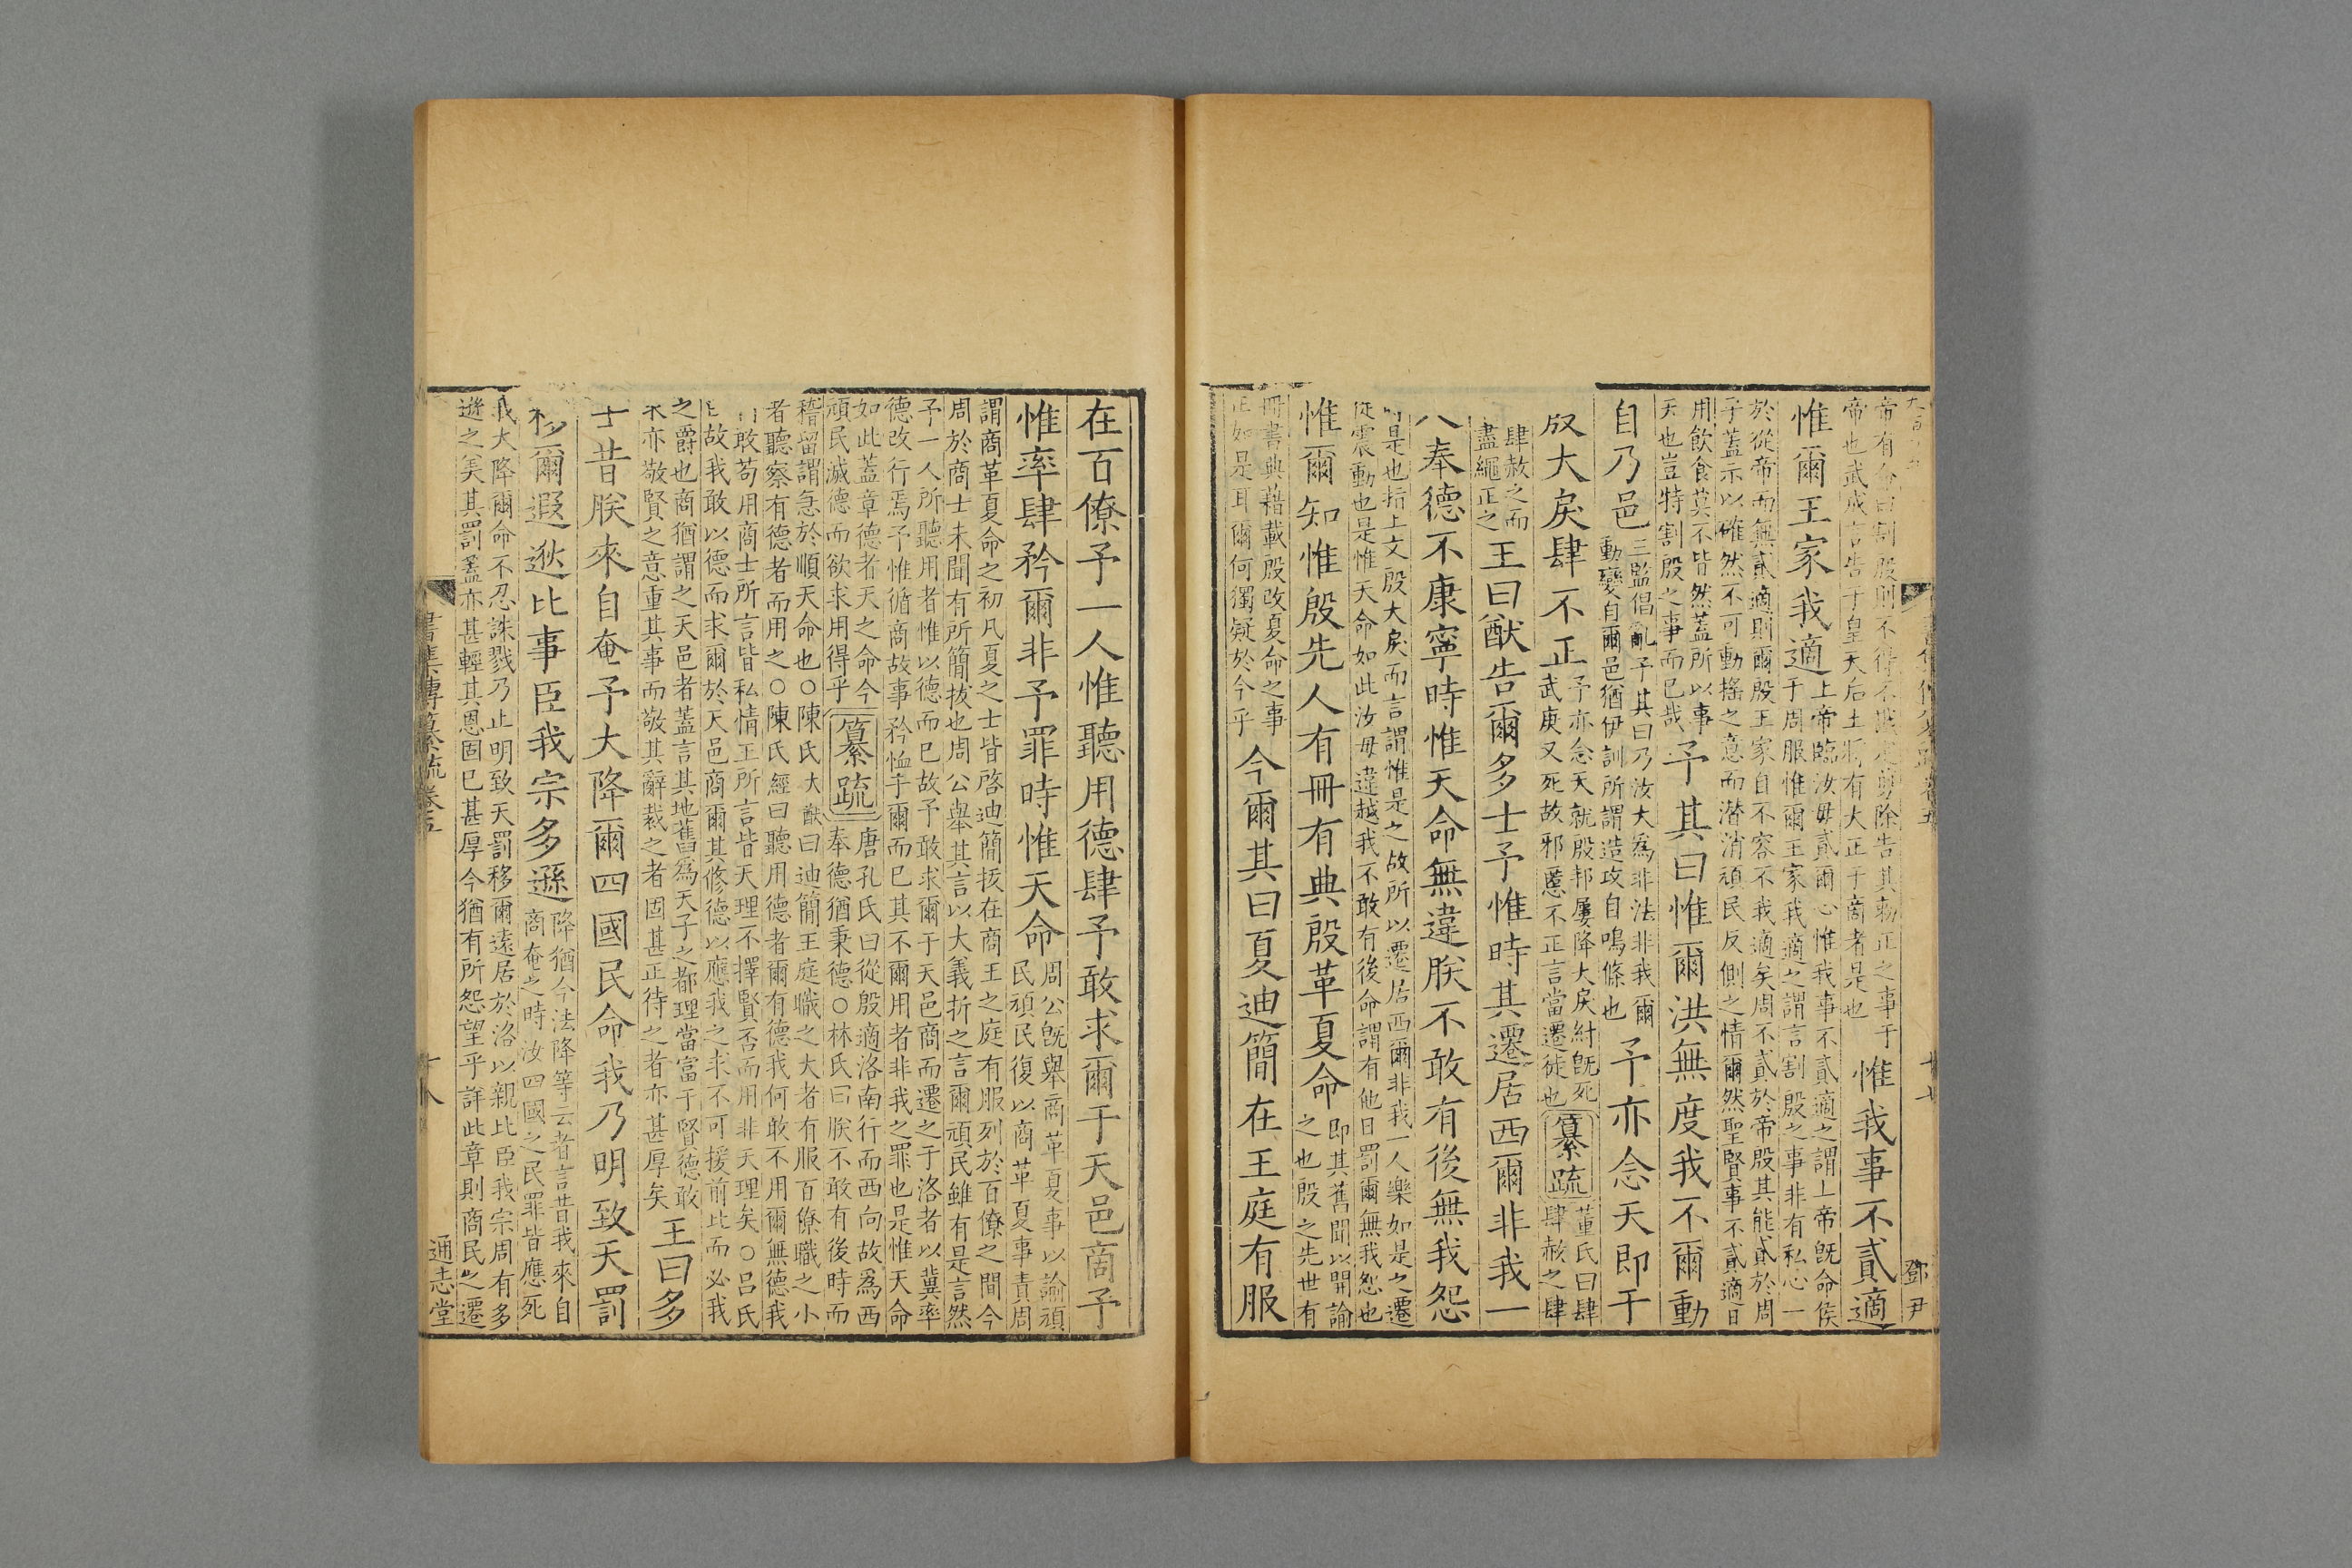 帝有命曰割殷則不得不戡定剪除告其勅正之事于
帝也武成言告于皇天后土將有大正于商者是也
惟我事不貳適
惟爾王家我適
上帝臨汝毋貳爾心惟我事不貳適之謂上帝旣命侯
于周服惟爾王家我適之謂言割殷之事非有私心一
於從帝而無貳適則爾殷王家自不容不我適矣周不貳於帝殷其能貳於周
乎蓋示以確然不可動搖之意而潛消頑民反側之情爾然聖賢事不貳適日
用飲食莫不皆然蓋所以事
天也豈特割殷之事而已哉
予其曰惟爾洪無度我不爾動
自乃邑
三監倡亂予其曰乃汝大爲非法非我爾
動變自爾邑猶伊訓所謂造攻自鳴條也
予亦念天即于
殷大戾肆不正
予亦念天就殷邦屢降大戾紂旣死
武庚又死故邪慝不正言當遷徙也
纂疏
董氏曰肆
肆赦之肆
肆赦之而
盡繩正之
王曰猷告爾多士予惟時其遷居西爾非我一
人奉德不康寧時惟天命無違朕不敢有後無我怨
時是也指上文殷大戾而言謂惟是之故所以遷居西爾非我一人樂如是之遷
徙震動也是惟天命如此汝毋違越我不敢有後命謂有他日罰爾無我怨也
惟爾知惟殷先人有冊有典殷革夏命
即其舊聞以開諭
之也殷之先世有
冊書典籍載殷改夏命之事
正如是耳爾何獨疑於今乎
今爾其曰夏迪簡在王庭有服
鄧尹
在百僚予一人惟聽用德肆予敢求爾于天邑商予
惟率肆矜爾非予罪時惟天命
周公旣舉商革夏事以諭頑
民頑民復以商革夏事責周
謂商革夏命之初凡夏之士皆啓迪簡拔在商王之庭有服列於百僚之間今
周於商士未聞有所簡拔也周公舉其言以大義折之言爾頑民雖有是言然
予一人所聽用者惟以德而已故予敢求爾于天邑商而遷之于洛者以冀率
德改行焉予惟循商故事矜恤于爾而已其不爾用者非我之罪也是惟天命
如此蓋章德者天之命今
頑民滅德而欲求用得乎
纂疏
唐孔氏曰從殷適洛南行而西向故爲西
奉德猶秉德○林氏曰朕不敢有後時而
稽留謂急於順天命也○陳氏大猷曰迪簡王庭職之大者有服百僚職之小
者聽察有德者而用之○陳氏經曰聽用德者爾有德我何敢不用爾無德我
敢苟用商士所言皆私情王所言皆天理不擇賢否而用非天理矣○呂氏
故我敢以德而求爾於天邑商爾其修德以應我之求不可援前此而必我
之爵也商猶謂之天邑者蓋言其地舊爲天子之都理當富于賢德敢
求亦敬賢之意重其事而敬其辭裁之者固甚正待之者亦甚厚矣
王曰多
士昔朕來自奄予大降爾四國民命我乃明致天罰
移爾遐逖比事臣我宗多遜
降猶今法降等云者言昔我來自
商奄之時汝四國之民罪皆應死
我大降爾命不忍誅戮乃止明致天罰移爾遠居於洛以親比臣我宗周有多
遜之美其罰蓋亦甚輕其恩固已甚厚今猶有所怨望乎詳此章則商民之遷
書集傳纂疏卷五
十八
通志堂